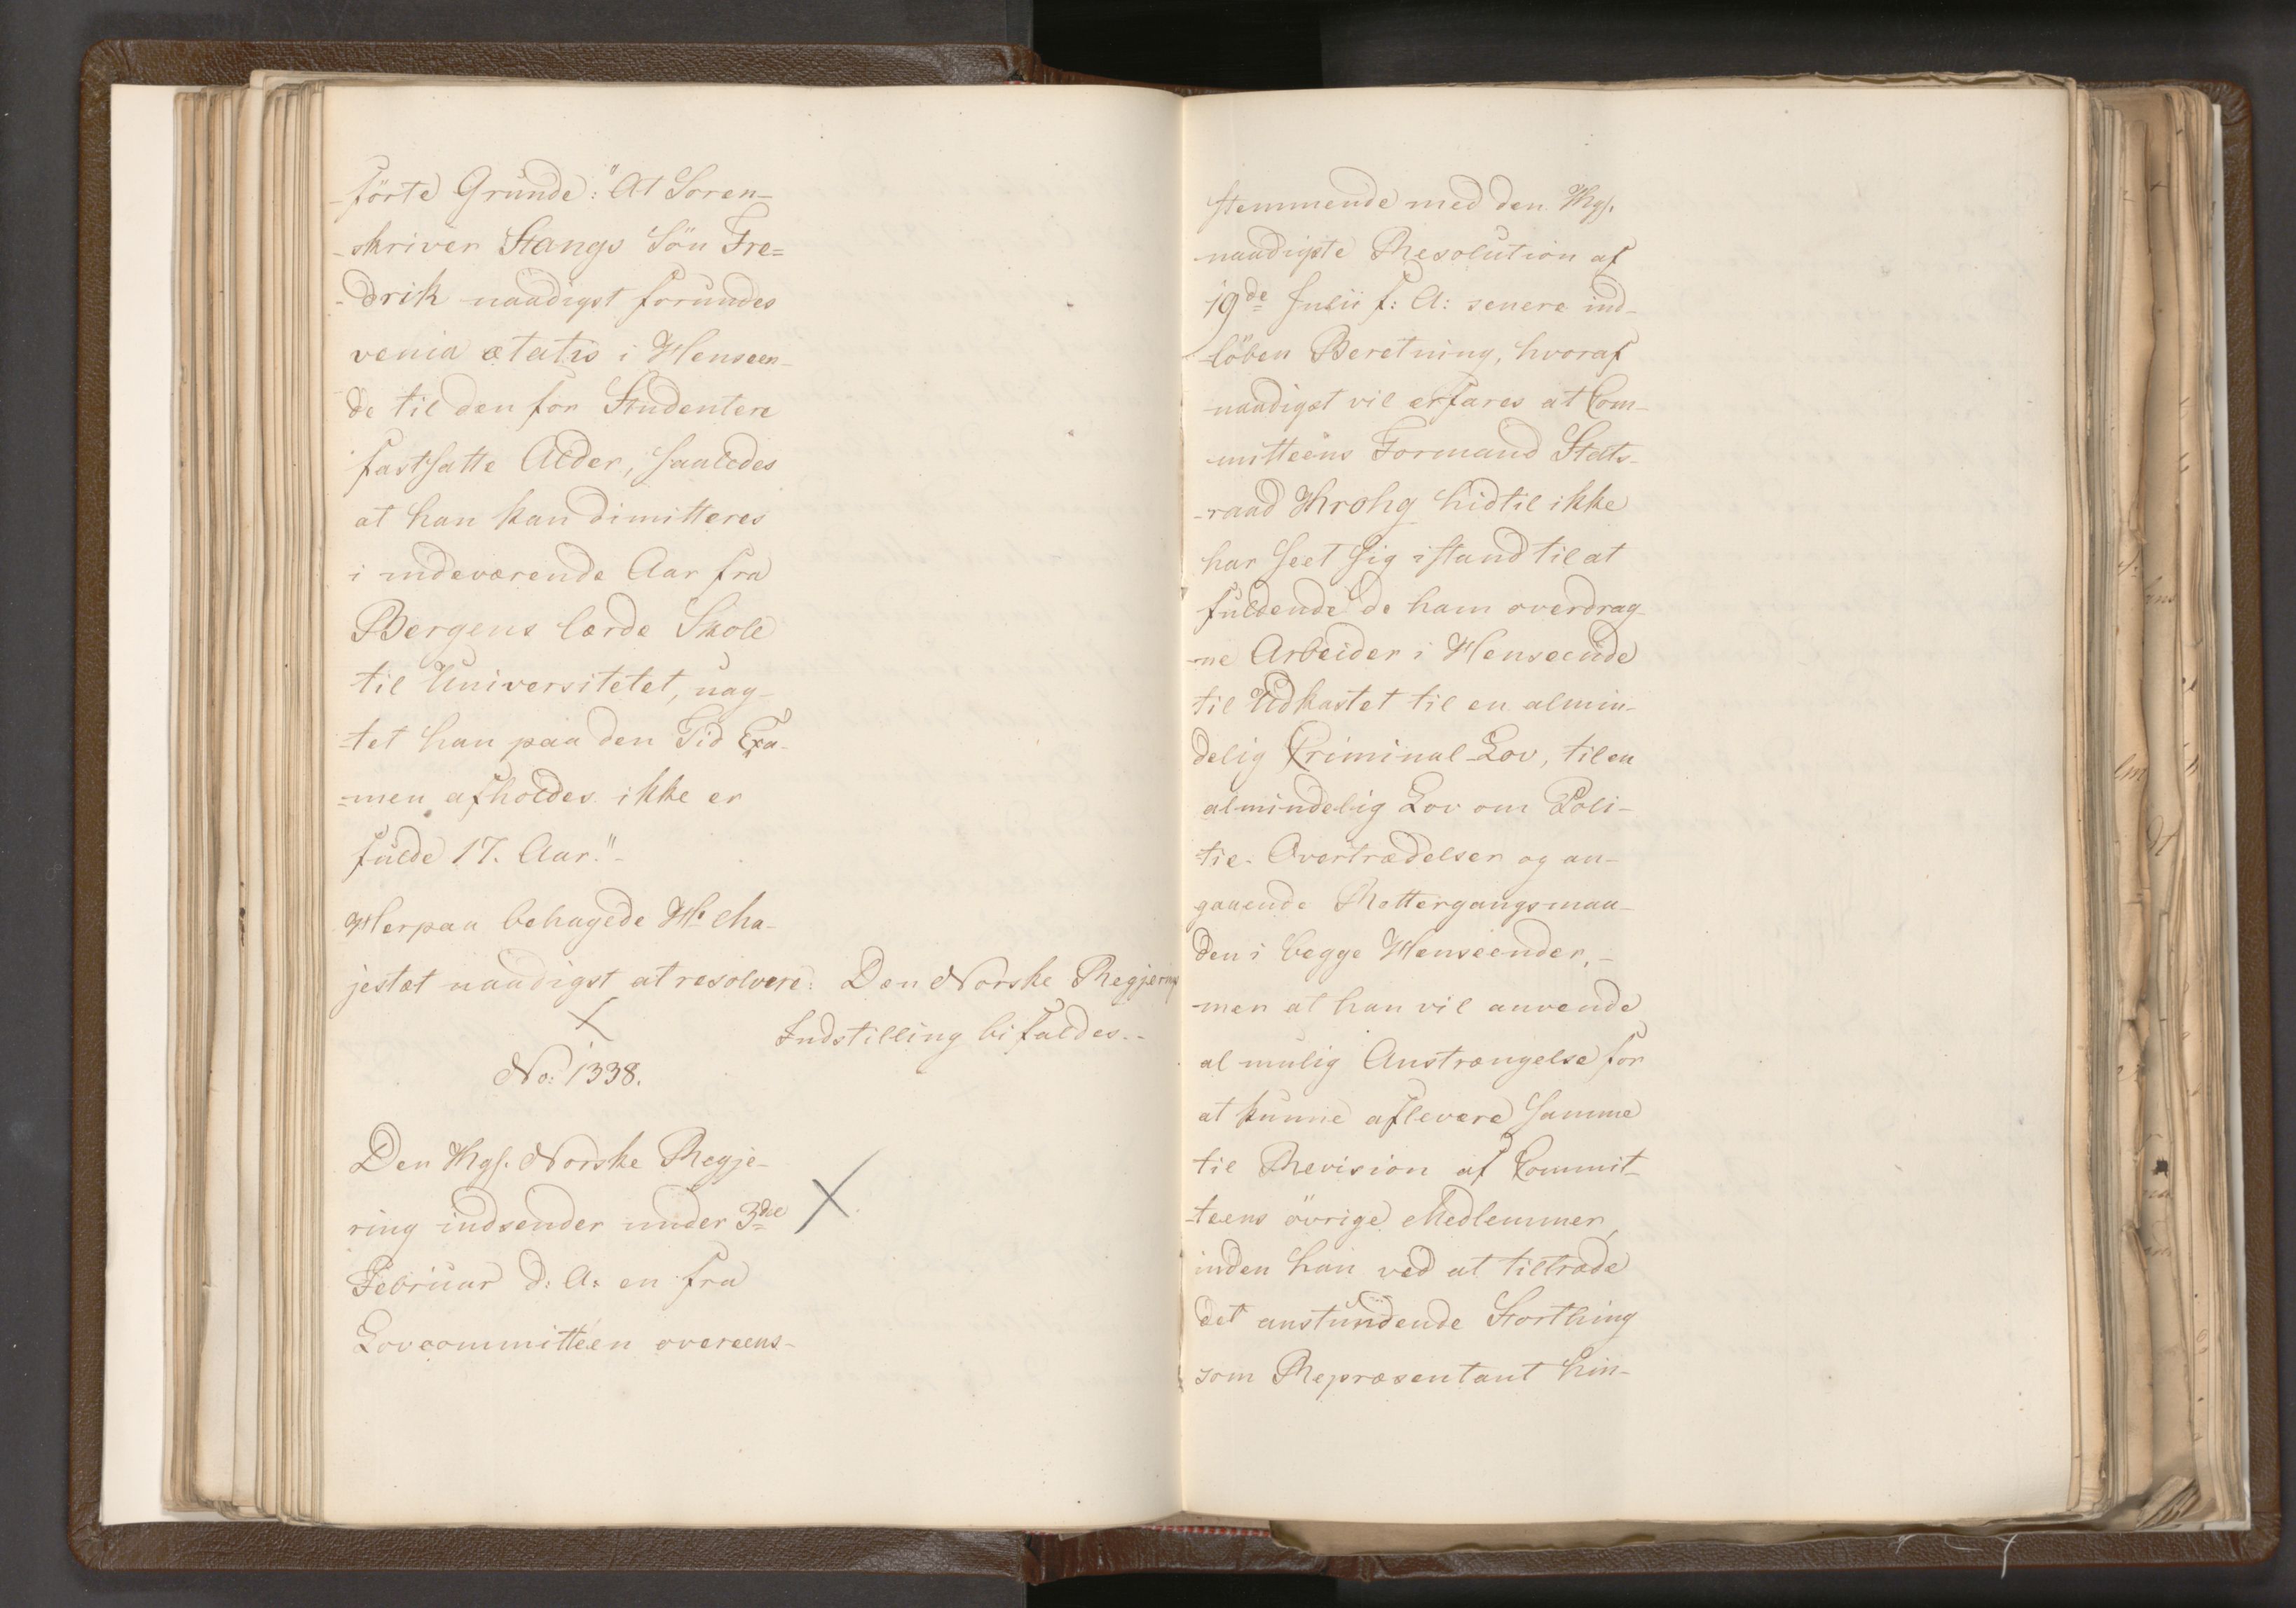 -förte Grunde: "At Soren-
-skriver Stangs Sön Fre=
-drik naadigst forundes
venia ætatis i Henseen-
de til den for Studentere
fastsatte Alder, saaledes
at han kan dimitteres
i indeværende Aar fra
Bergens lærde Skole
til Universitetet, uag-
-tet han paa den Tid Exa-
-men afholdes ikke er
fulde 17. Aar."-
Herpaa behagede Hs Ma-
jestæt naadigst at resolvere: Den Norske Regjerings
Indstilling bifaldes.-
No: 1338.
Den Kgs. Norske Regje-
ring indsender under 3die
Februar d: A: en fra
Lovcommitteen overeens-
stemmende med den Kgs.
naadigste Resolution af
19de Julii f: A: senere ind-
-löben Beretning, hvoraf
naadigst vil erfares at Com-
mitteens Formand Stats-
-raad Krohg hidtil ikke
har seet sig istand til at
fuldende de ham overdrag-
-ne Arbeider i Henseende
til Udkastet til en almin-
delig Criminal-Lov, til en
almindelig Lov om Poli-
-tie-Overtrædelser og an-
gaaende Rettergangsmaa-
den i begge Henseender,-
men at han vil anvende
al mulig Anstrængelse for
at kunne aflevere samme
til Revision af Commit-
-teens övrige Medlemmer,
inden han ved at tiltræde
det anstundende Storthing
som Repræsentant hin-